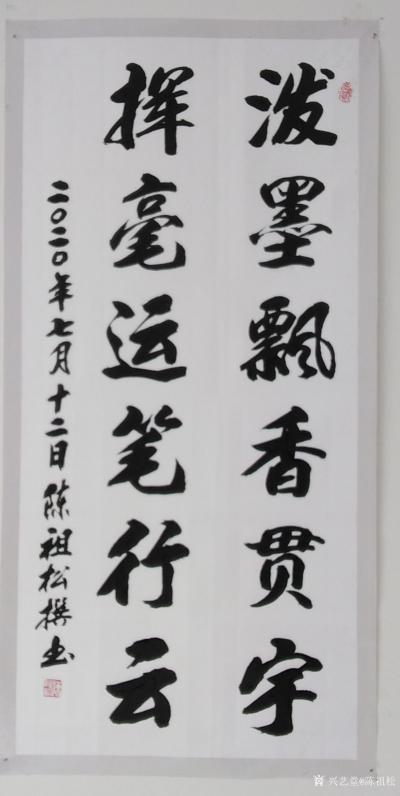 泼墨飘香贯宇
挥毫运笔行云
二〇二〇年七月十二日陈祖松撰书
兴艺堂@陈祖松